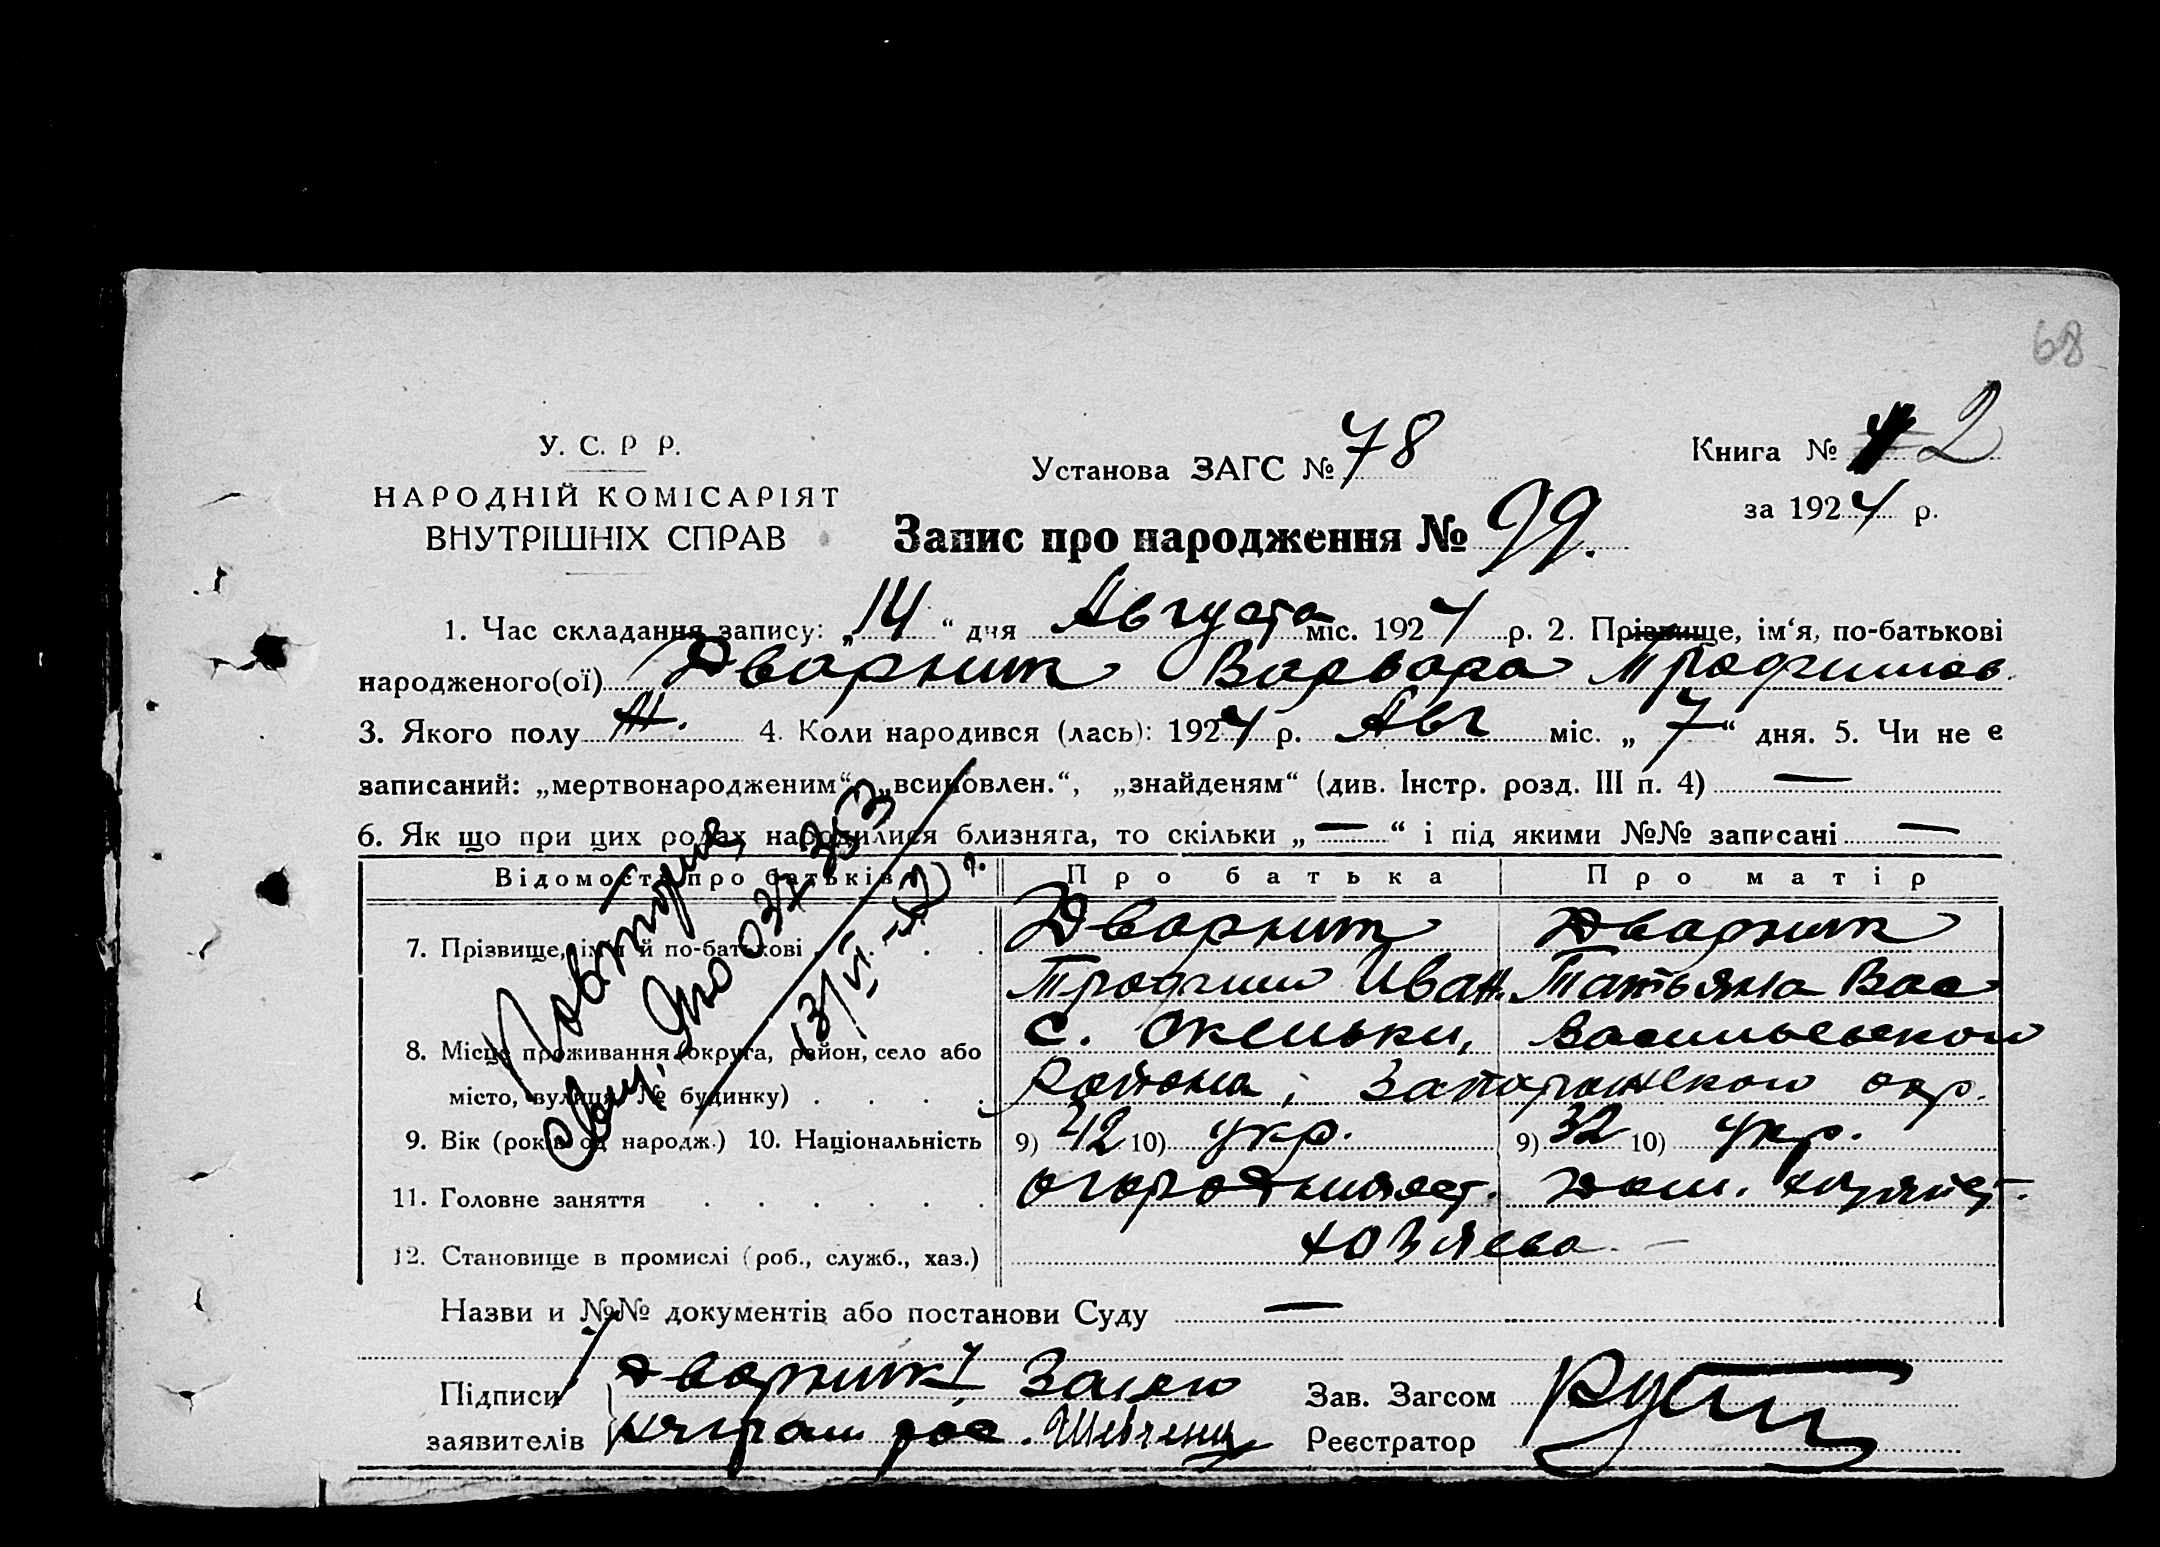 68
У. С. Р Р.
НАРОДНІЙ КОМІСАРІЯТ
ВНУТРІШНІХ СПРАВ
Установа ЗАГС № 78
Книга № 2
за 1924 р.
Запис про народження № 99.
1. Час складання запису: „14“ дня Августа міс. 1924 р. 2. Прізвище, ім‘я, по-батькові
народженого(ої) Дворник Варвара Трофимов.
3. Якого полу Ж. 4. Коли народився (лась): 1924 р. Авг міс. „7“ дня. 5. Чи не є
записаний: „мертвонародженим“, „всиновлен.“, „знайденям“ (див. Інстр. розд. III п. 4) —
6. Як що при цих родах народилися близнята, то скільки „—“ і під якими №№ записані —
Відомости про батьків Про батька Про матір
7. Прізвище, ім‘я й по-батькові . . . Дворник Дворник
Трофим Иван. Татьяна Вас
8. Місце проживання (округа, район, село або с. Скельки, Васильевского
місто, вулиця, № будинку) . . . . Района, Запорожского окр.
9. Вік (років од народж.) 10. Національність 9) 42 10) укр. 9) 32 10) укр.
11. Головне заняття . . . . . . дом.
12. Становище в промислі (роб., служб., хаз.) хозяева
Повторне
Свид.
Назви и №№ документів або постанови Суду —
Підписи Дворник
заявителів Шевченко
Зав. Загсом
Реєстратор